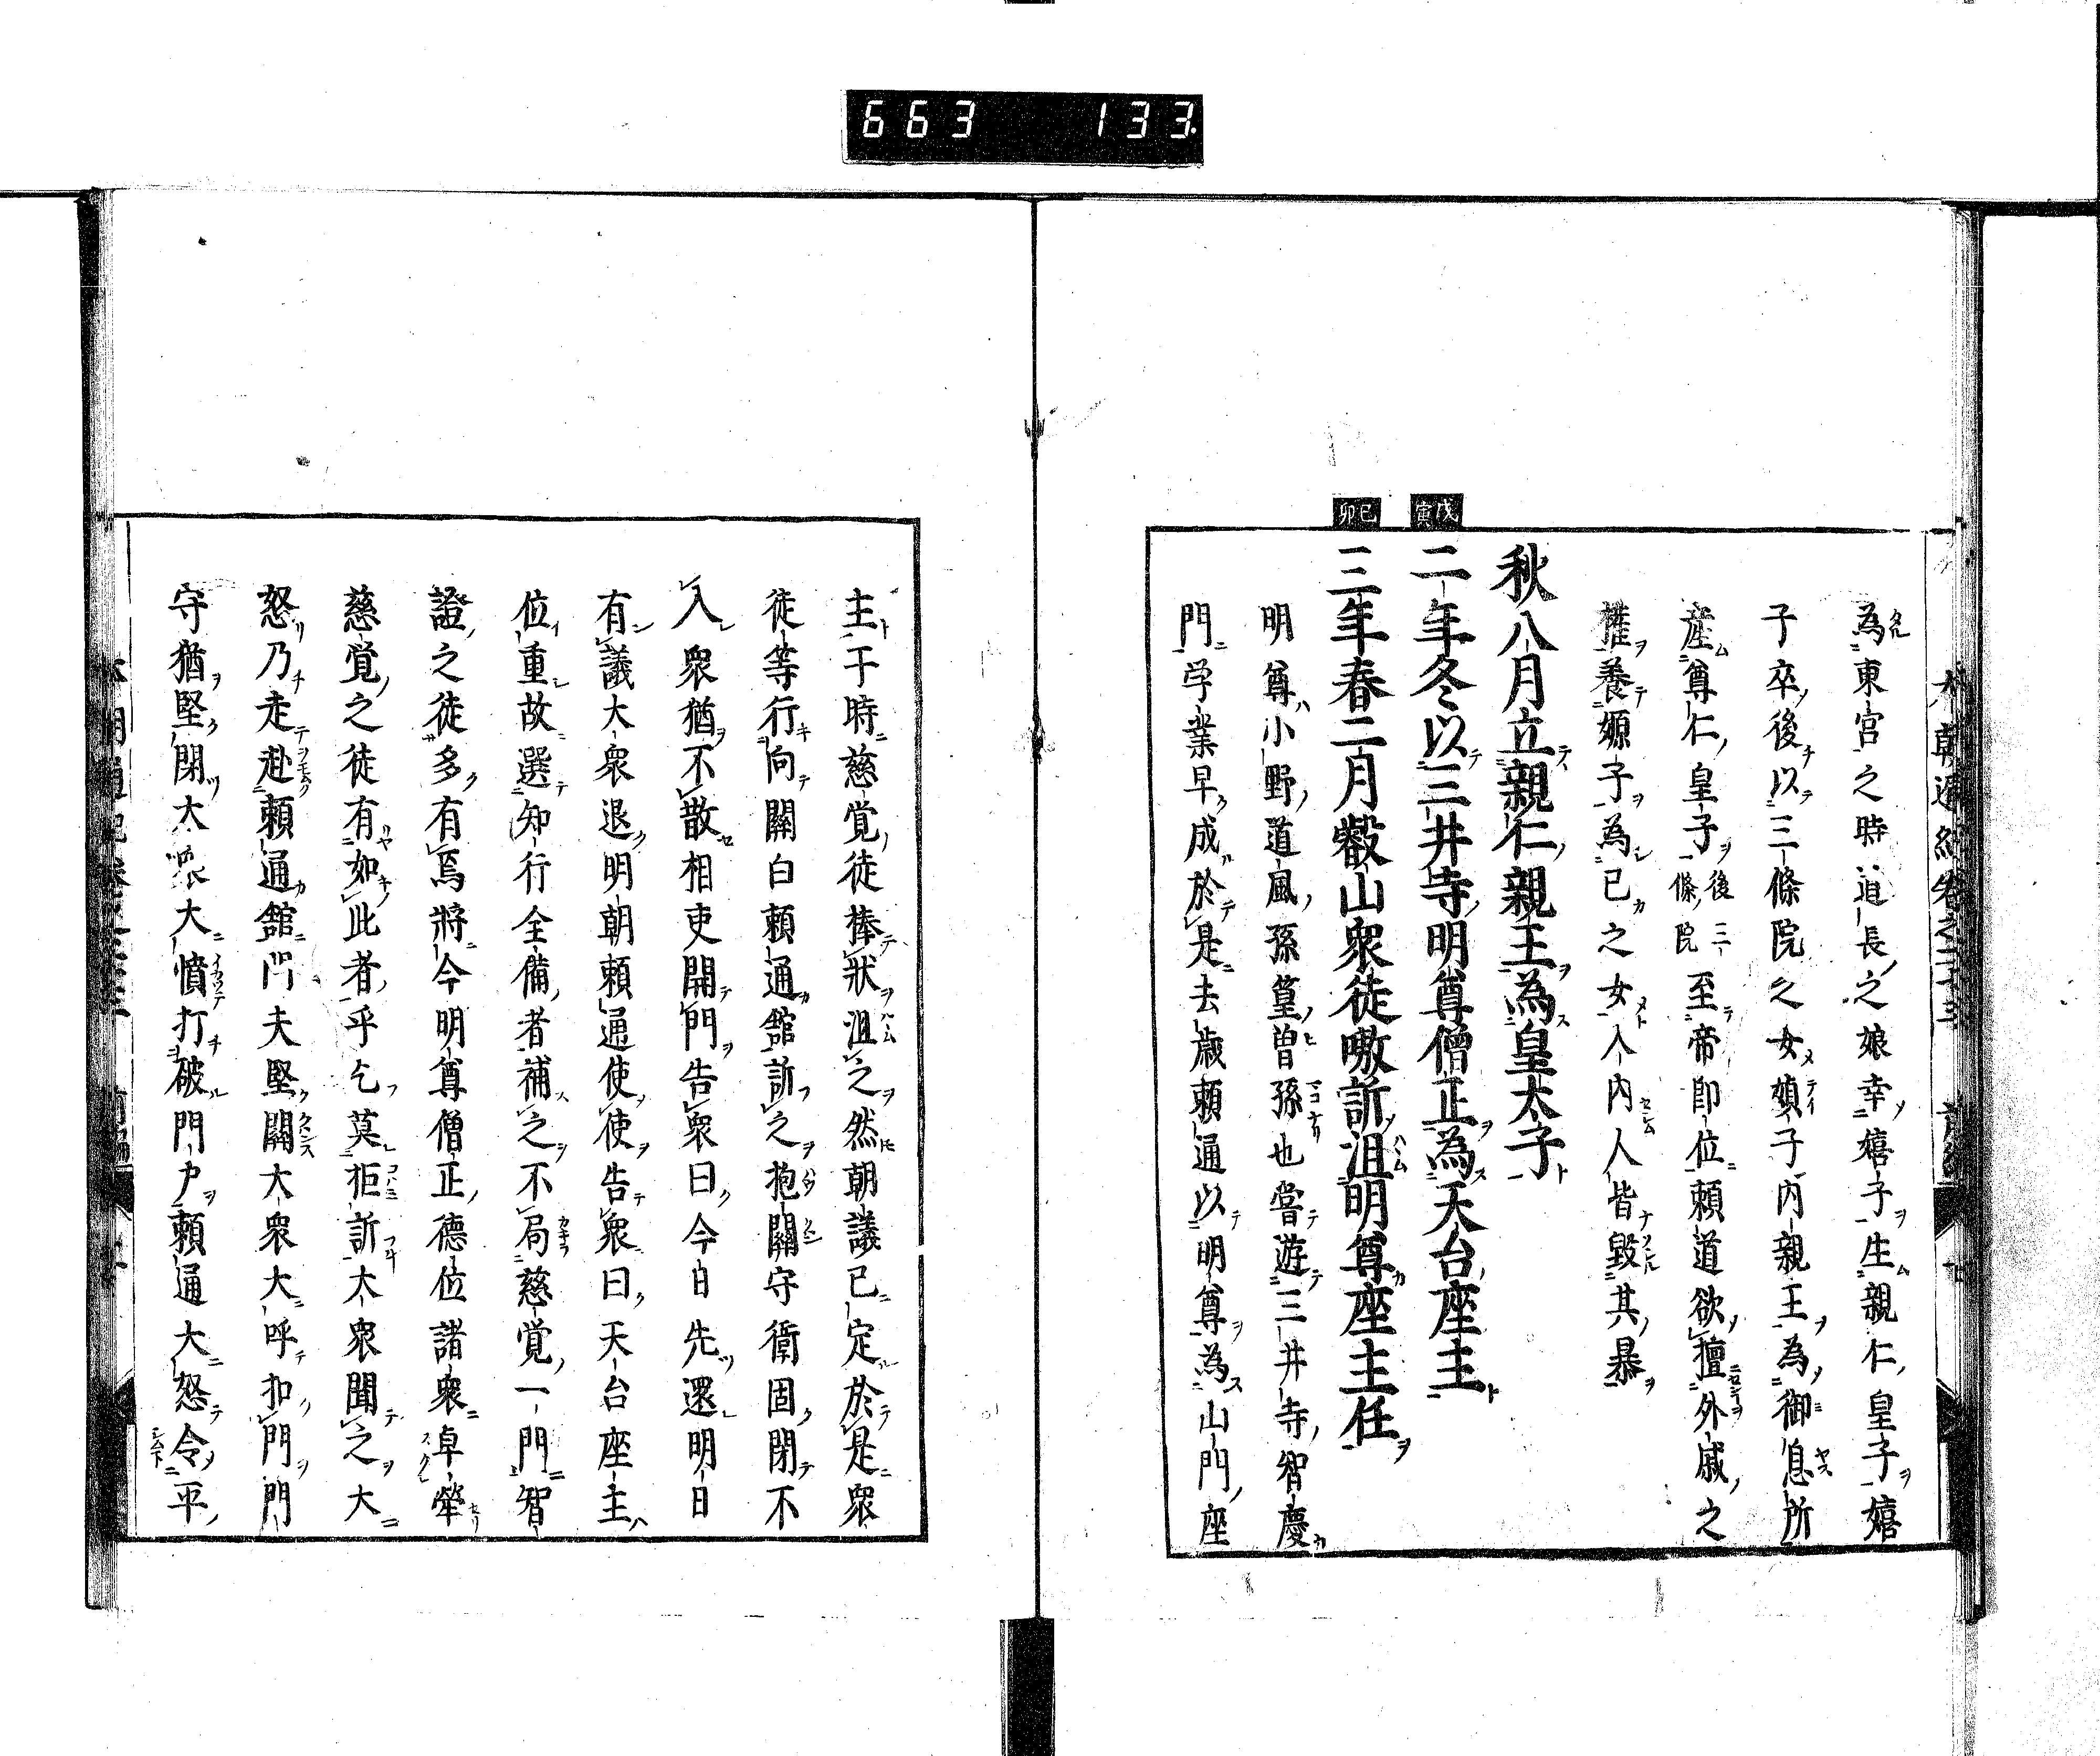 663 133
為東宮之時道長之娘幸嬉子生親仁皇子嬉
子卒後以三條院之女禎子内親王為御息所
産尊仁皇子後三條院至帝即位頼道欲擅外戚之
権養嫄子為已之女入内人皆毀其暴
秋八月立親仁親王為皇太子
戊寅
二年冬以三井寺明尊僧正為天台座主
己卯
三年春二月叡山衆徒嗷訴沮明尊座主任
明尊小野道風孫篁曽孫也嘗遊三井寺智慶
門学業早成於是去歳頼通以明尊為山門座
主于時慈覚徒捧状沮之然朝議已定於是衆
徒等行向關白頼通舘訴之抱關守衛固閉不
入衆猶不散相吏開門告衆曰今日先還明日
有議大衆退明朝頼通使使告衆曰天台座主
位重故選知行全備者補之不局慈覚一門智
證之徒多有焉將今明尊僧正徳位諸衆卓犖
慈覚之徒有如此者乎乞莫拒訴大衆聞之大
怒乃走赴頼通舘門夫堅關大衆大呼扣門門
守猶堅閉大衆大憤打破門戸頼通大怒令平